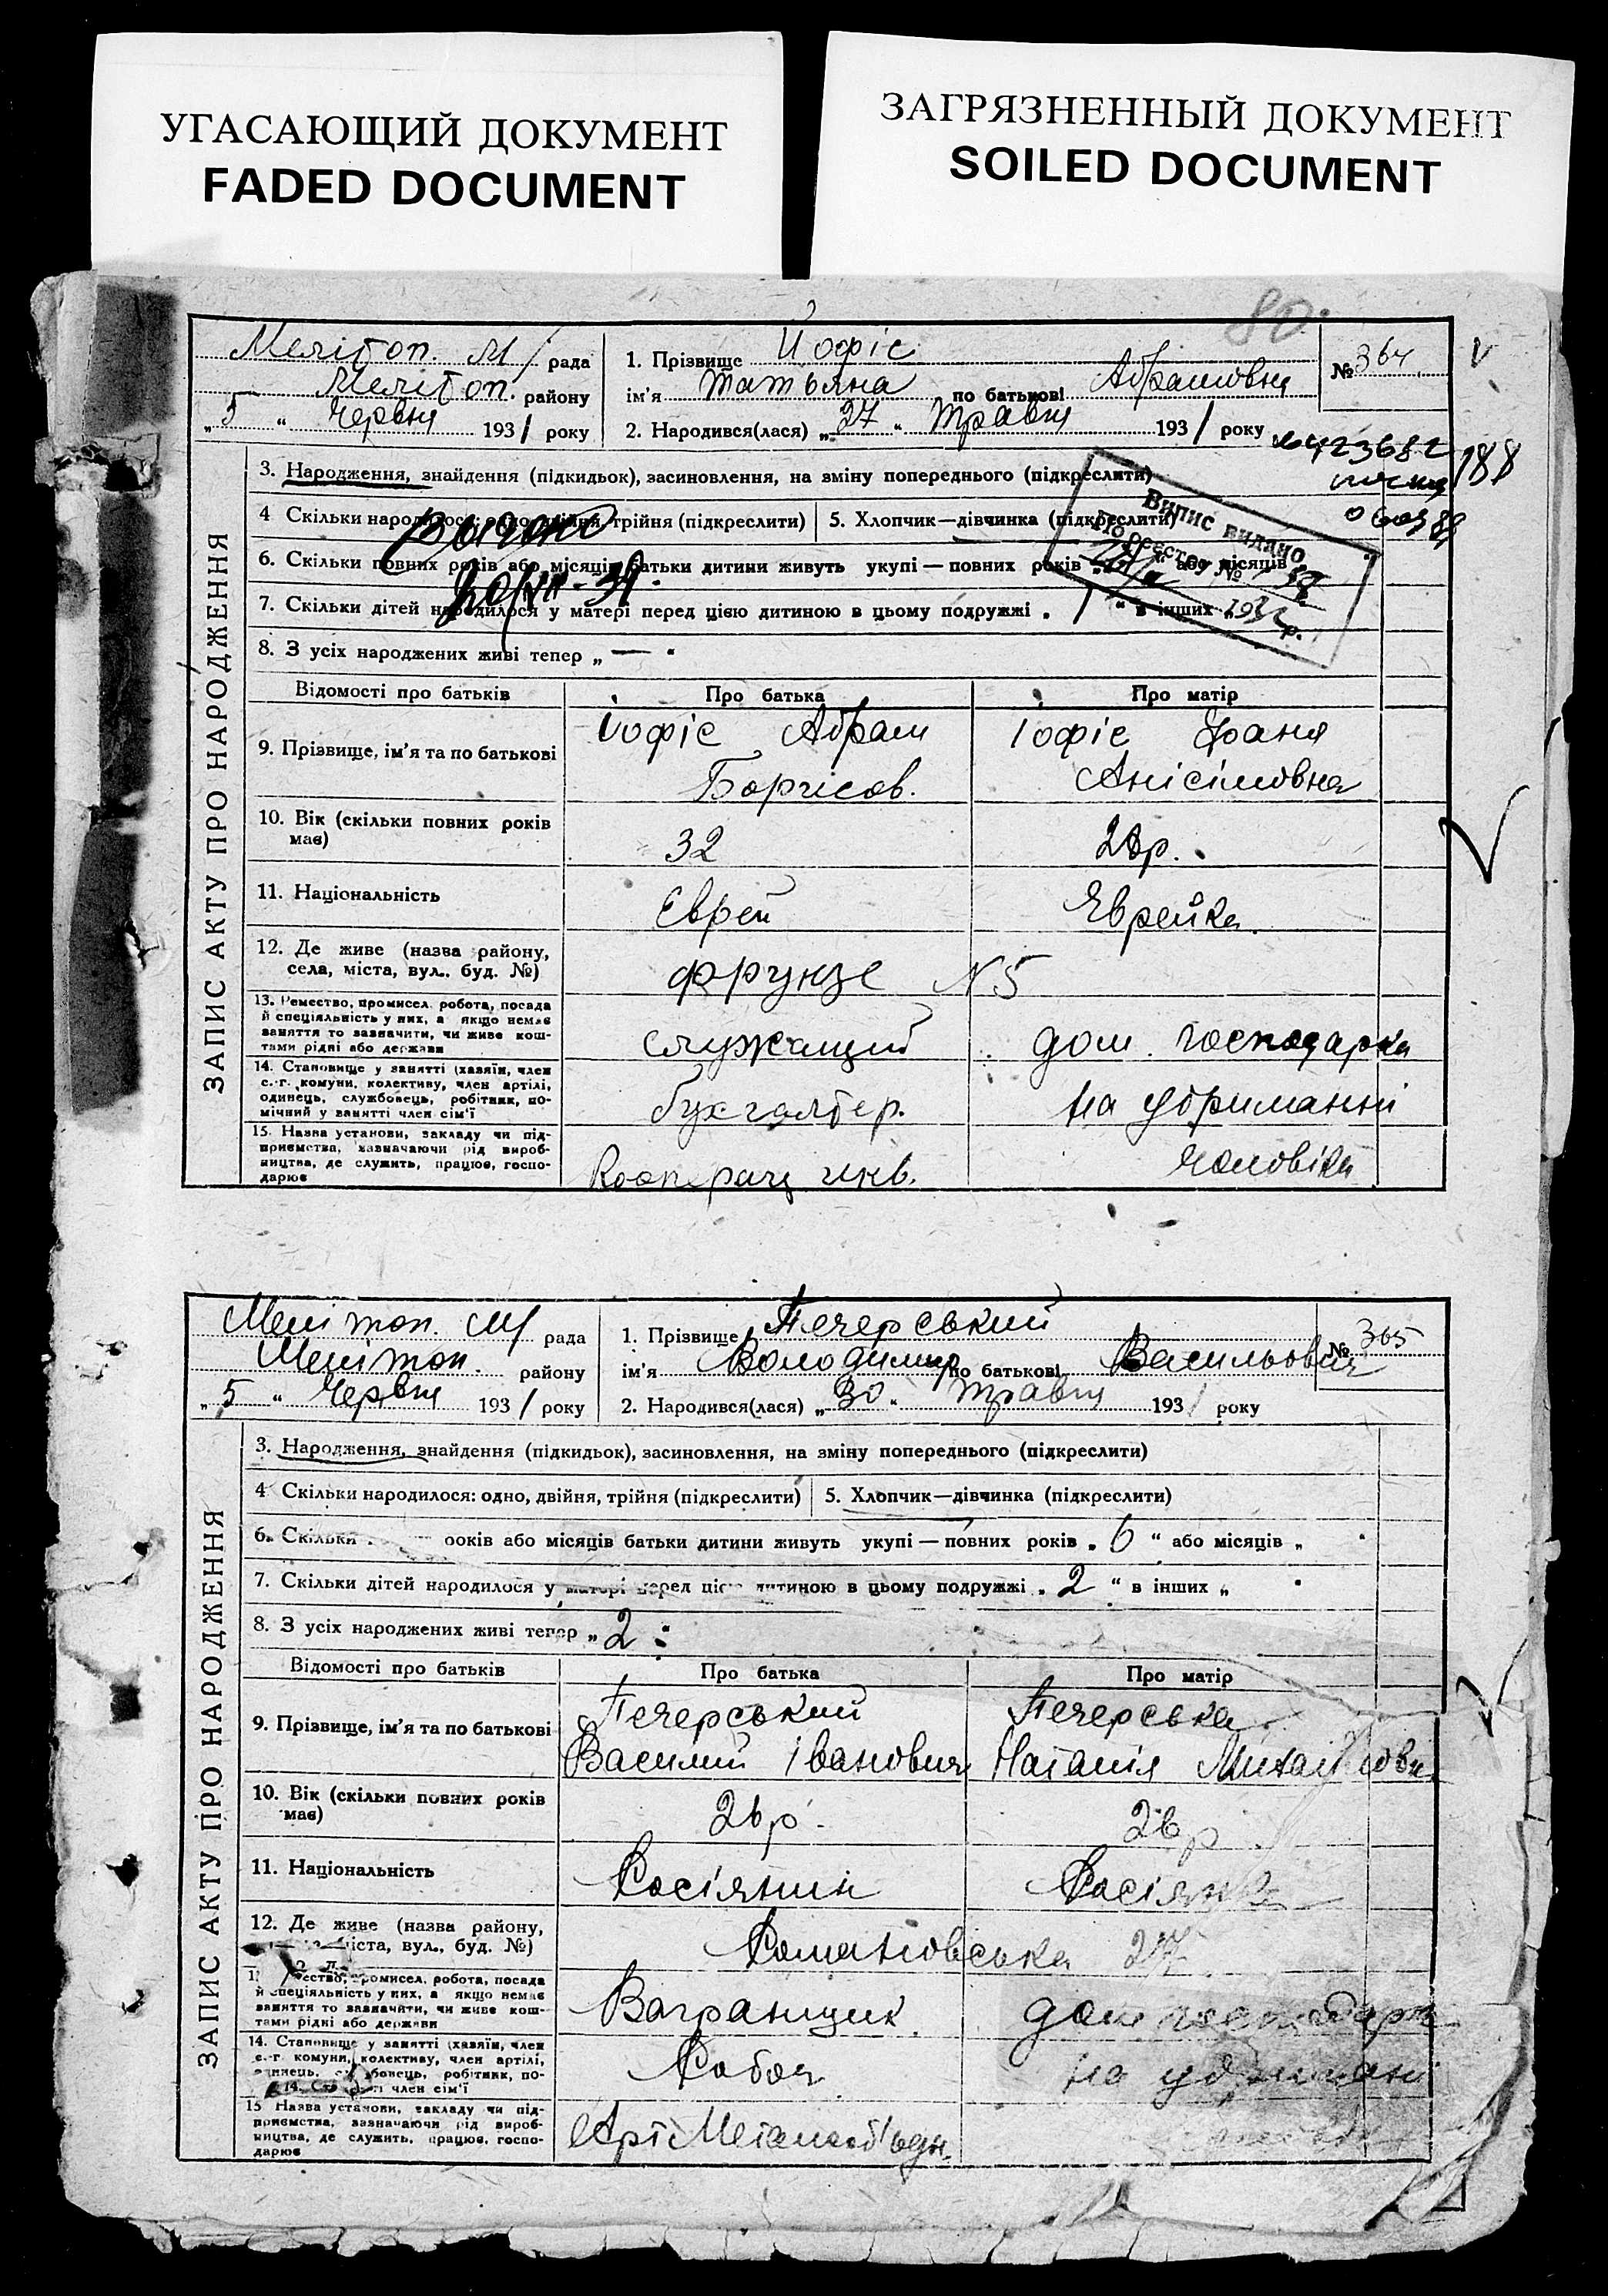 УГАСАЮЩИЙ ДОКУМЕНТ
FADED DOCUMENT
ЗАГРЯЗНЕННЫЙ ДОКУМЕНТ
SOILED DOCUMENT
80
ЗАПИС АКТУ ПРО НАРОДЖЕННЯ
Мелітоп. М/ рада
Мелітоп. району
„ 5 “ Червня 1931 року
1. Прізвище Йофіс
ім'я Татьяна по батькові Абрамовна
2. Народився(лася) „ 27 “ травня 1931 року
№ 364
188
3. Народження, знайдення (підкидьок), засиновлення, на зміну попереднього (підкреслити)
4 Скільки народилося: одно, двійня, трійня (підкреслити)
5. Хлопчик—дівчинка (підкреслити)
Випис видано
По реєстру №
6. Скільки повних років або місяців батьки дитини живуть укупі — повних років „ “ або місяців „
7. Скільки дітей народилося у матері перед цією дитиною в цьому подружжі „ 1 “ в інших „
1932 р.
8. З усіх народжених живі тепер „ — “
Відомості про батьків
Про батька
Про матір
9. Прізвище, ім'я та по батькові
Іофіс Абрам
Борисов.
Іофіс Фаня
Анісімовна
10. Вік (скільки повних років
має)
32
28р.
11. Національність
Еврей
Еврейка.
12. Де живе (назва району,
села, міста, вул., буд. №)
Фрунзе N 5
13. Ремество, промисел, робота, посада
й спеціяльність у них, а якщо немає
заняття то зазначити, чи живе кош-
тами рідні або держави
служащий
дом. господарка
14. Становище у занятті (хазяїн, член
с.-г. комуни, колективу, член артілі,
одинець, службовець, робітник, по-
мічний у занятті член сім'ї
бухгалтер.
на утриманні
15. Назва установи, закладу чи під-
приємства, зазначаючи рід вироб-
ництва, де служить, працює, госпо-
дарює
Кооперац інв.
чоловіка
ЗАПИС АКТУ ПРО НАРОДЖЕННЯ
Мелітоп. М/ рада
Мелітоп. району
„ 5 “ Червня 1931 року
1. Прізвище Печерський
ім'я Володимир по батькові Васильович
2. Народився(лася) „ 30 “ травня 1931 року
№ 365
3. Народження, знайдення (підкидьок), засиновлення, на зміну попереднього (підкреслити)
4 Скільки народилося: одно, двійня, трійня (підкреслити)
5. Хлопчик—дівчинка (підкреслити)
6. Скільки років або місяців батьки дитини живуть укупі — повних років „ 6 “ або місяців „ “
7. Скільки дітей народилося у матері перед цією дитиною в цьому подружжі „ 2 “ в інших „ “
8. З усіх народжених живі тепер „ 2 “
Відомості про батьків
Про батька
Про матір
9. Прізвище, ім'я та по батькові
Печерський
Василий Іванович
Печерська
Наталія Михайловн
10. Вік (скільки повних років
має)
26р.
26р
11. Національність
Росіянин
Росіянка
12. Де живе (назва району,
міста, вул., буд. №)
Романовська 27
промисел, робота, посада
й спеціяльність у них, а якщо немає
заняття то зазначити, чи живе кош-
тами рідні або держави
Вагранщик
дом господарк
14. Становище у занятті (хазяїн, член
с.-г. комуни, колективу, член артілі,
робітник, по-
член сім'ї
Робоч.
на утриман
15 Назва установи, закладу чи під-
приємства, зазначаючи рід вироб-
ництва, де служить, працює, госпо-
дарює